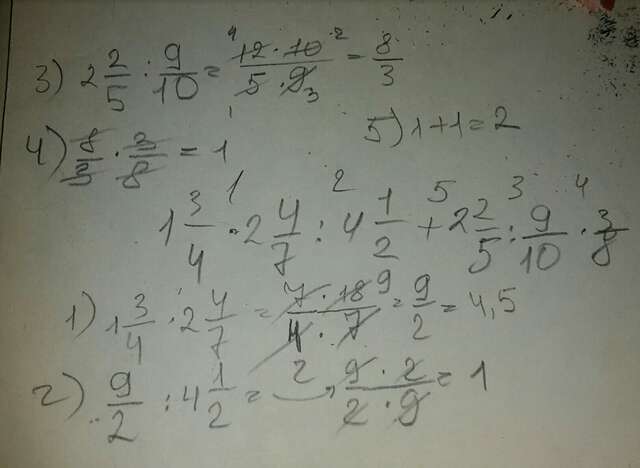 3) 2 2/5 : 9/10 = 12 · 10 / 5 · 9 = 8/3
4) 8/3 · 3/8 = 1
5) 1+1=2
1 3/4 · 2 4/7 : 4 1/2 + 2 2/5 : 9/10 · 3/8
1) 1 3/4 · 2 4/7 = 7 · 18 / 4 · 7 = 9/2 = 4,5
2) 9/2 : 4 1/2 = 9 · 2 / 2 · 9 = 1